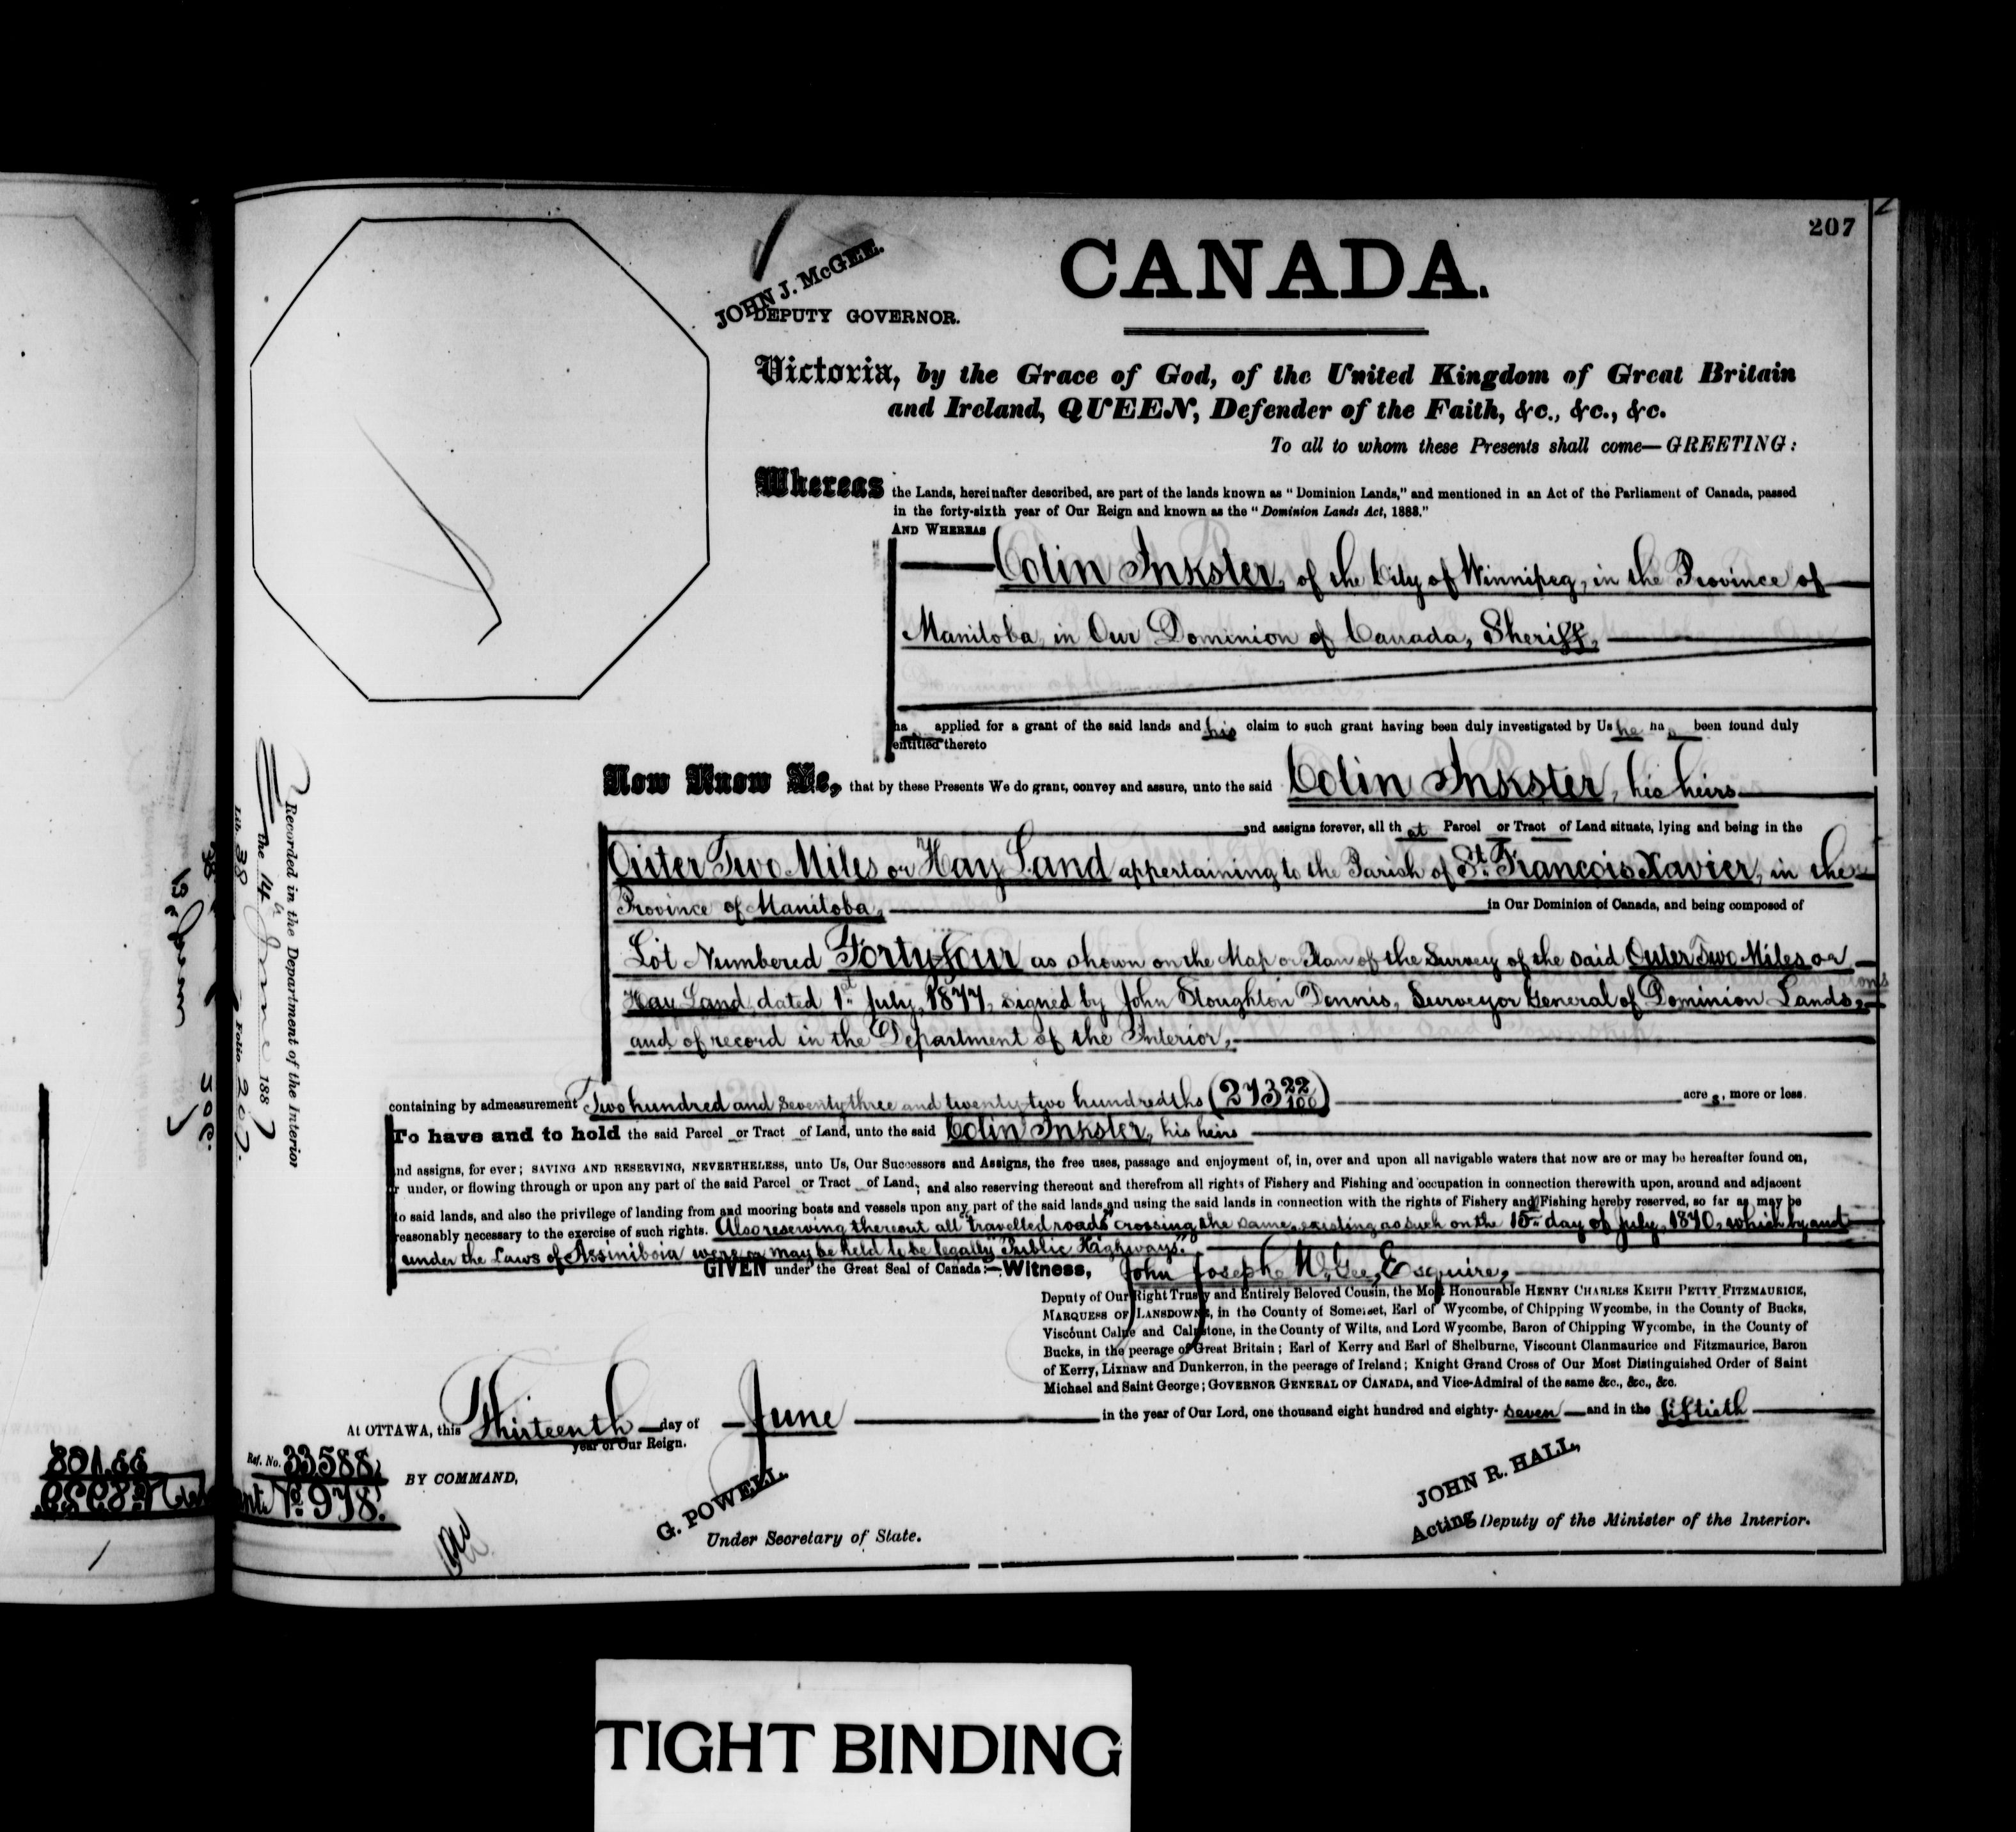 207
CANADA.
JOHN J. McGEE.
DEPUTY GOVERNOR.
Victoria, by the Grace of God, of the United Kingdom of Great Britain
and Ireland, QUEEN, Defender of the Faith, &c., &c., &c.
To all to whom these Presents shall come—GREETING:
Whereas the Lands, hereinafter described, are part of the lands known as "Dominion Lands," and mentioned in an Act of the Parliament of Canada, passed
in the forty-sixth year of Our Reign and known as the "Dominion Lands Act, 1883."
AND WHEREAS
Colin Inkster, of the City of Winnipeg, in the Province of
Manitoba, in Our Dominion of Canada, Sheriff,
has applied for a grant of the said lands and his claim to such grant having been duly investigated by Us he has been found duly
entitled thereto
Now Know Ye, that by these Presents We do grant, convey and assure, unto the said Colin Inkster, his heirs
and assigns forever, all that Parcel or Tract of Land situate, lying and being in the
Outer Two Miles or Hay Land appertaining to the Parish of St. Francois Xavier, in the
Province of Manitoba, in Our Dominion of Canada, and being composed of
Lot Numbered Forty four as shown on the Map or Plan of the Survey of the said Outer Two Miles or
Hay Land, dated 1st July, 1877, signed by John Stoughton Dennis, Surveyor General of Dominion Lands,
and of record in the Department of the Interior,
containing by admeasurement Two hundred and seventy three and twenty-two hundredths (273 22/100) acres, more or less.
To have and to hold the said Parcel or Tract of Land, unto the said Colin Inkster, his heirs
and assigns, for ever; SAVING AND RESERVING, NEVERTHELESS, unto Us, Our Successors and Assigns, the free uses, passage and enjoyment of, in, over and upon all navigable waters that now are or may be hereafter found on,
or under, or flowing through or upon any part of the said Parcel or Tract of Land; and also reserving thereout and therefrom all rights of Fishery and Fishing and occupation in connection therewith upon, around and adjacent
to said lands, and also the privilege of landing from and mooring boats and vessels upon any part of the said lands and using the said lands in connection with the rights of Fishery and Fishing hereby reserved, so far as may be
reasonably necessary to the exercise of such rights. Also reserving thereout all "travelled roads" crossing the same, existing as such on the 15th day of July, 1870, which by and
under the Laws of Assiniboia were or may be held to be legally "Public Highways".
GIVEN under the Great Seal of Canada:—Witness, John Joseph McGee, Esquire,
Deputy of Our Right Trusty and Entirely Beloved Cousin, the Most Honourable HENRY CHARLES KEITH PETTY FITZMAURICE,
MARQUESS OF LANSDOWNE, in the County of Somerset, Earl of Wycombe, of Chipping Wycombe, in the County of Bucks,
Viscount Calne and Calnstone, in the County of Wilts, and Lord Wycombe, Baron of Chipping Wycombe, in the County of
Bucks, in the peerage of Great Britain; Earl of Kerry and Earl of Shelburne, Viscount Clanmaurice and Fitzmaurice, Baron
of Kerry, Lixnaw and Dunkerron, in the peerage of Ireland; Knight Grand Cross of Our Most Distinguished Order of Saint
Michael and Saint George; GOVERNOR GENERAL OF CANADA, and Vice-Admiral of the same &c., &c., &c.
At OTTAWA, this Thirteenth day of June in the year of Our Lord, one thousand eight hundred and eighty-seven and in the fiftieth
year of Our Reign.
Ref. No. 33588.
BY COMMAND,
No. 978.
G. POWELL.
Under Secretary of State.
JOHN R. HALL,
Acting Deputy of the Minister of the Interior.
Recorded in the Department of the Interior
the 14th June 1887
Lib. 38 Folio 207.
80166
TIGHT BINDING